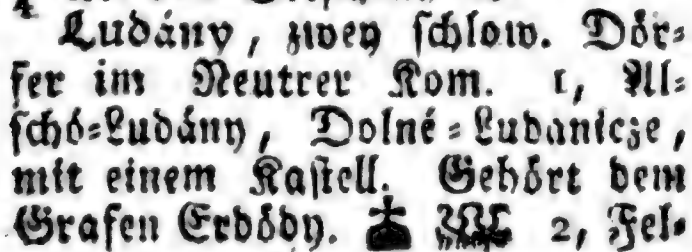 Ludány, zwey schlow. Dör-
fer im Neutrer Kom. 1, Al-
schó-Ludány, Dolné-Ludanicze,
mit einem Kastell. Gehört dem
Grafen Erdödy. 2, Fel-